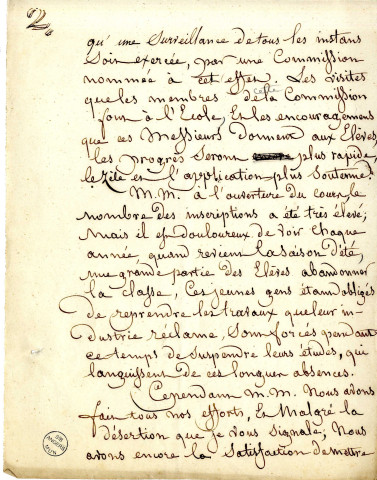 2.
qu'une Surveillance de tous les instans
Soit exercée, par une Commission
nommée à cet effet. Les visites
que les membres de cette Commission
font à l'École, Et les encouragemens
que ces Messieurs donnent aux Elèves,
les progrès seront plus rapide,
le zèle et l'application plus Soutenue.
M.M. à l'ouverture du cours, le
nombre des inscriptions a été très élevé;
Mais il est douloureux de voir chaque
année, quand revient la Saison d'été,
une grande partie des Elèves abandonner
la classe, Ces jeunes gens étant obligés
de reprendre les travaux que leur in-
dustrie réclame, Sont forcés pendant
ce temps de Suspendre leurs études, qui
languissent de ces longues absences.
Cependant M.M. Nous avons
fait tous nos efforts, Et Malgré la
désertion que je vous Signale; Nous
avons encore la Satisfaction de mettre